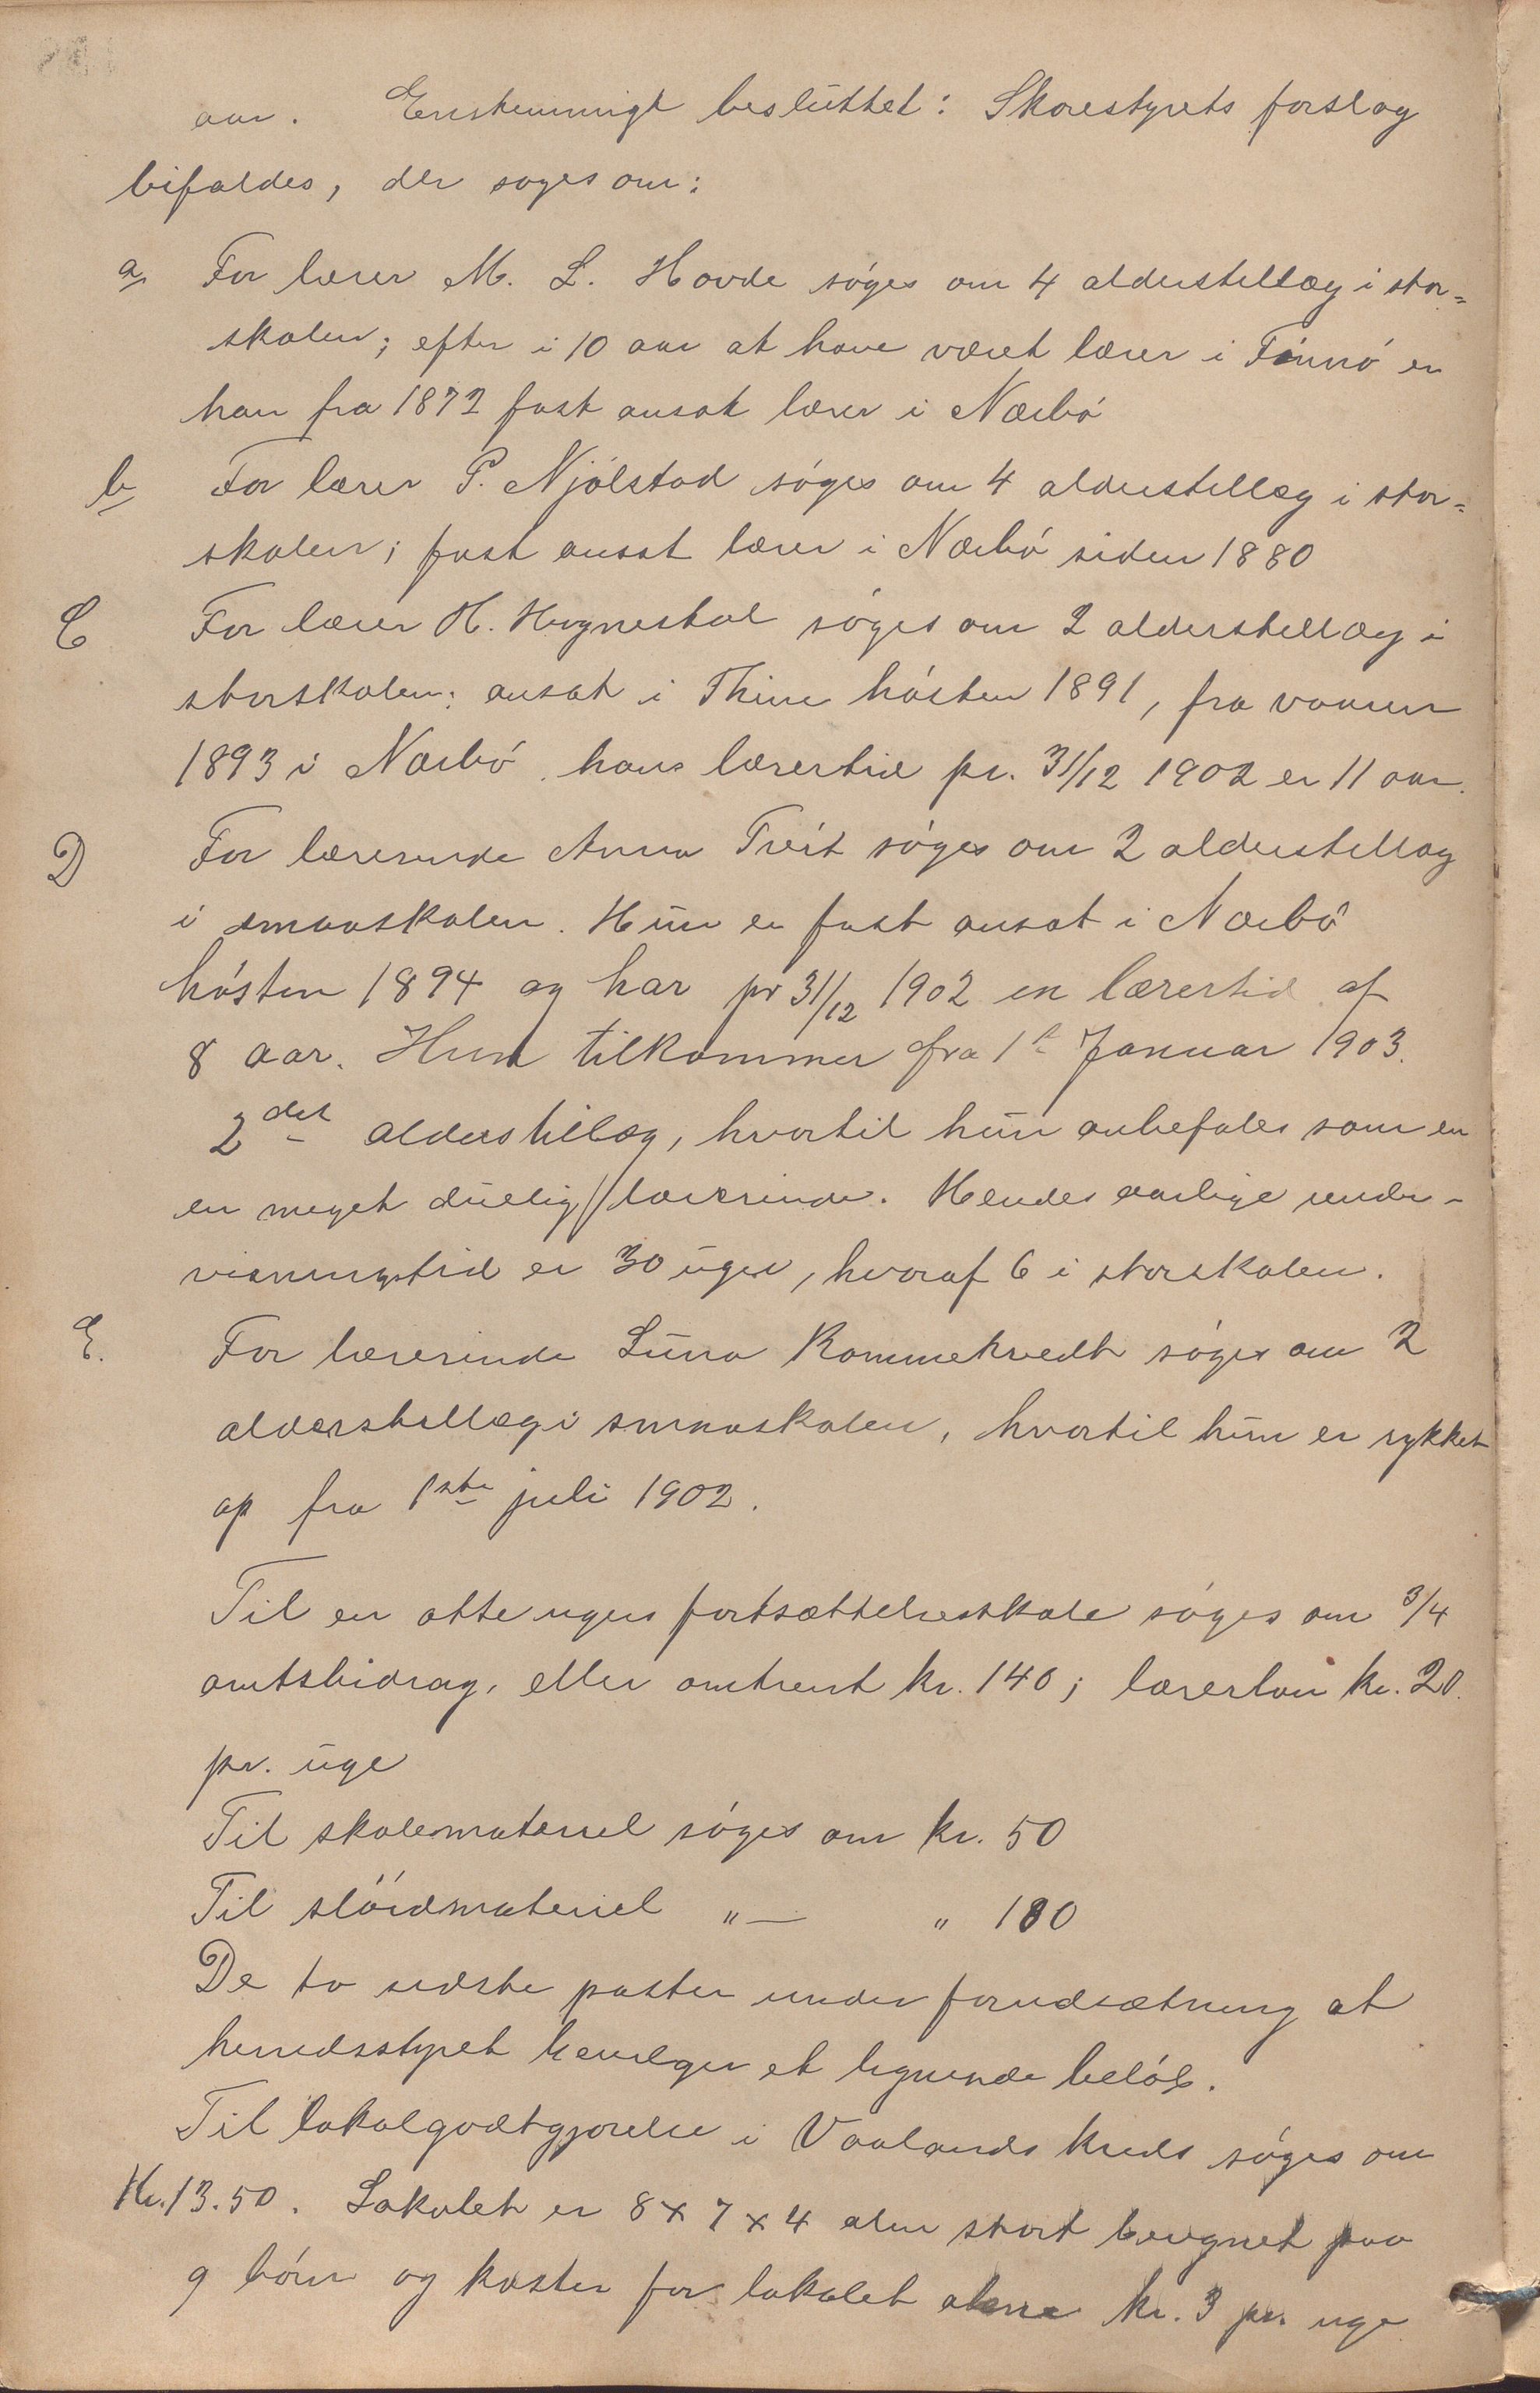 aar. Enstemmigt besluttet: Skolestyrets forslag
bifaldes, der søges om:
a For lærer M. L. Hovde søges om 4 alderstillæg i stor=
skolen; efter i 10 aar at have været lærer i Finnø er
han fra 1872 fast ansat lærer i Nærbø
b For lærer P. Njølstad søges om 4 alderstillæg i stor=
skolen; fast ansat lærer i Nærbø siden 1880
C For lærer H. Hognestad søges om 2 alderstillæg i
storskolen; ansat i Thime høsten 1891, fra vaaren
1893 i Nærbø, hans lærertid pr. 31/12 1902 er 11 aar.
D For lærerinde Anna Tveit søges om 2 alderstillæg
i smaaskolen. Hun er fast ansat i Nærbø
høsten 1894 og har pr 31/12 1902 en lærertid af
8 aar. Hun tilkommer fra 1ste Januar 1903.
2det alderstillæg, hvortil hun anbefales som en
en meget duelig lærerinde. Hendes aarlige under-
visningstid er 30 uger, hvoraf 6 i storskolen.
E. For lærerinde Lüna Rommetvedt søges om 2
alderstillæg i smaaskolen, hvortil hun er rykket
op fra 1ste juli 1902.
Til en otte ugers fortsættelsesskole søges om 3/4
amtsbidrag, eller omtrent kr. 140; lærerløn kr. 20.
pr. uge
Til skolemateriel søges om kr. 50
Til sløidmateriel "— " 100
De to sidste poster under forudsætning at
herredsstyret bevilger et lignende beløb.
Til lokalgodtgjørelse i Vaalands kreds søges om
Kr. 13.50. Lokalet er 8 x 7 x 4 alen stort beregnet paa
9 børn og koster for lokalet alene kr. 3 pr. uge